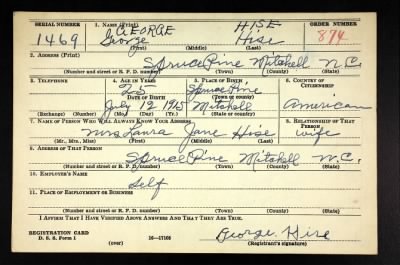 SERIAL NUMBER 1. NAME (Print) ORDER NUMBER
GEORGE HISE
1469 George Hise 874
(First) (Middle) (Last)
2. ADDRESS (Print)
Spruce Pine Mitchell N.C.
(Number and street or R. F. D. number) (Town) (County) (State)
3. TELEPHONE 4. AGE IN YEARS 5. PLACE OF BIRTH 6. COUNTRY OF CITIZENSHIP
25 Spruce Pine
DATE OF BIRTH (Town or county)
July 12 1915 Mitchell American
(Exchange) (Number) (Mo.) (Day) (Yr.) (State or country)
7. NAME OF PERSON WHO WILL ALWAYS KNOW YOUR ADDRESS 8. RELATIONSHIP OF THAT PERSON
Mrs Laura Jane Hise wife
(Mr., Mrs., Miss) (First) (Middle) (Last)
9. ADDRESS OF THAT PERSON
Spruce Pine Mitchell N.C.
(Number and street or R. F. D. number) (Town) (County) (State)
10. EMPLOYER'S NAME
Self
11. PLACE OF EMPLOYMENT OR BUSINESS
(Number and street or R. F. D. number) (Town) (County) (State)
I AFFIRM THAT I HAVE VERIFIED ABOVE ANSWERS AND THAT THEY ARE TRUE.
REGISTRATION CARD George. Hise
D. S. S. Form 1 (over) 16—17105 (Registrant's signature)